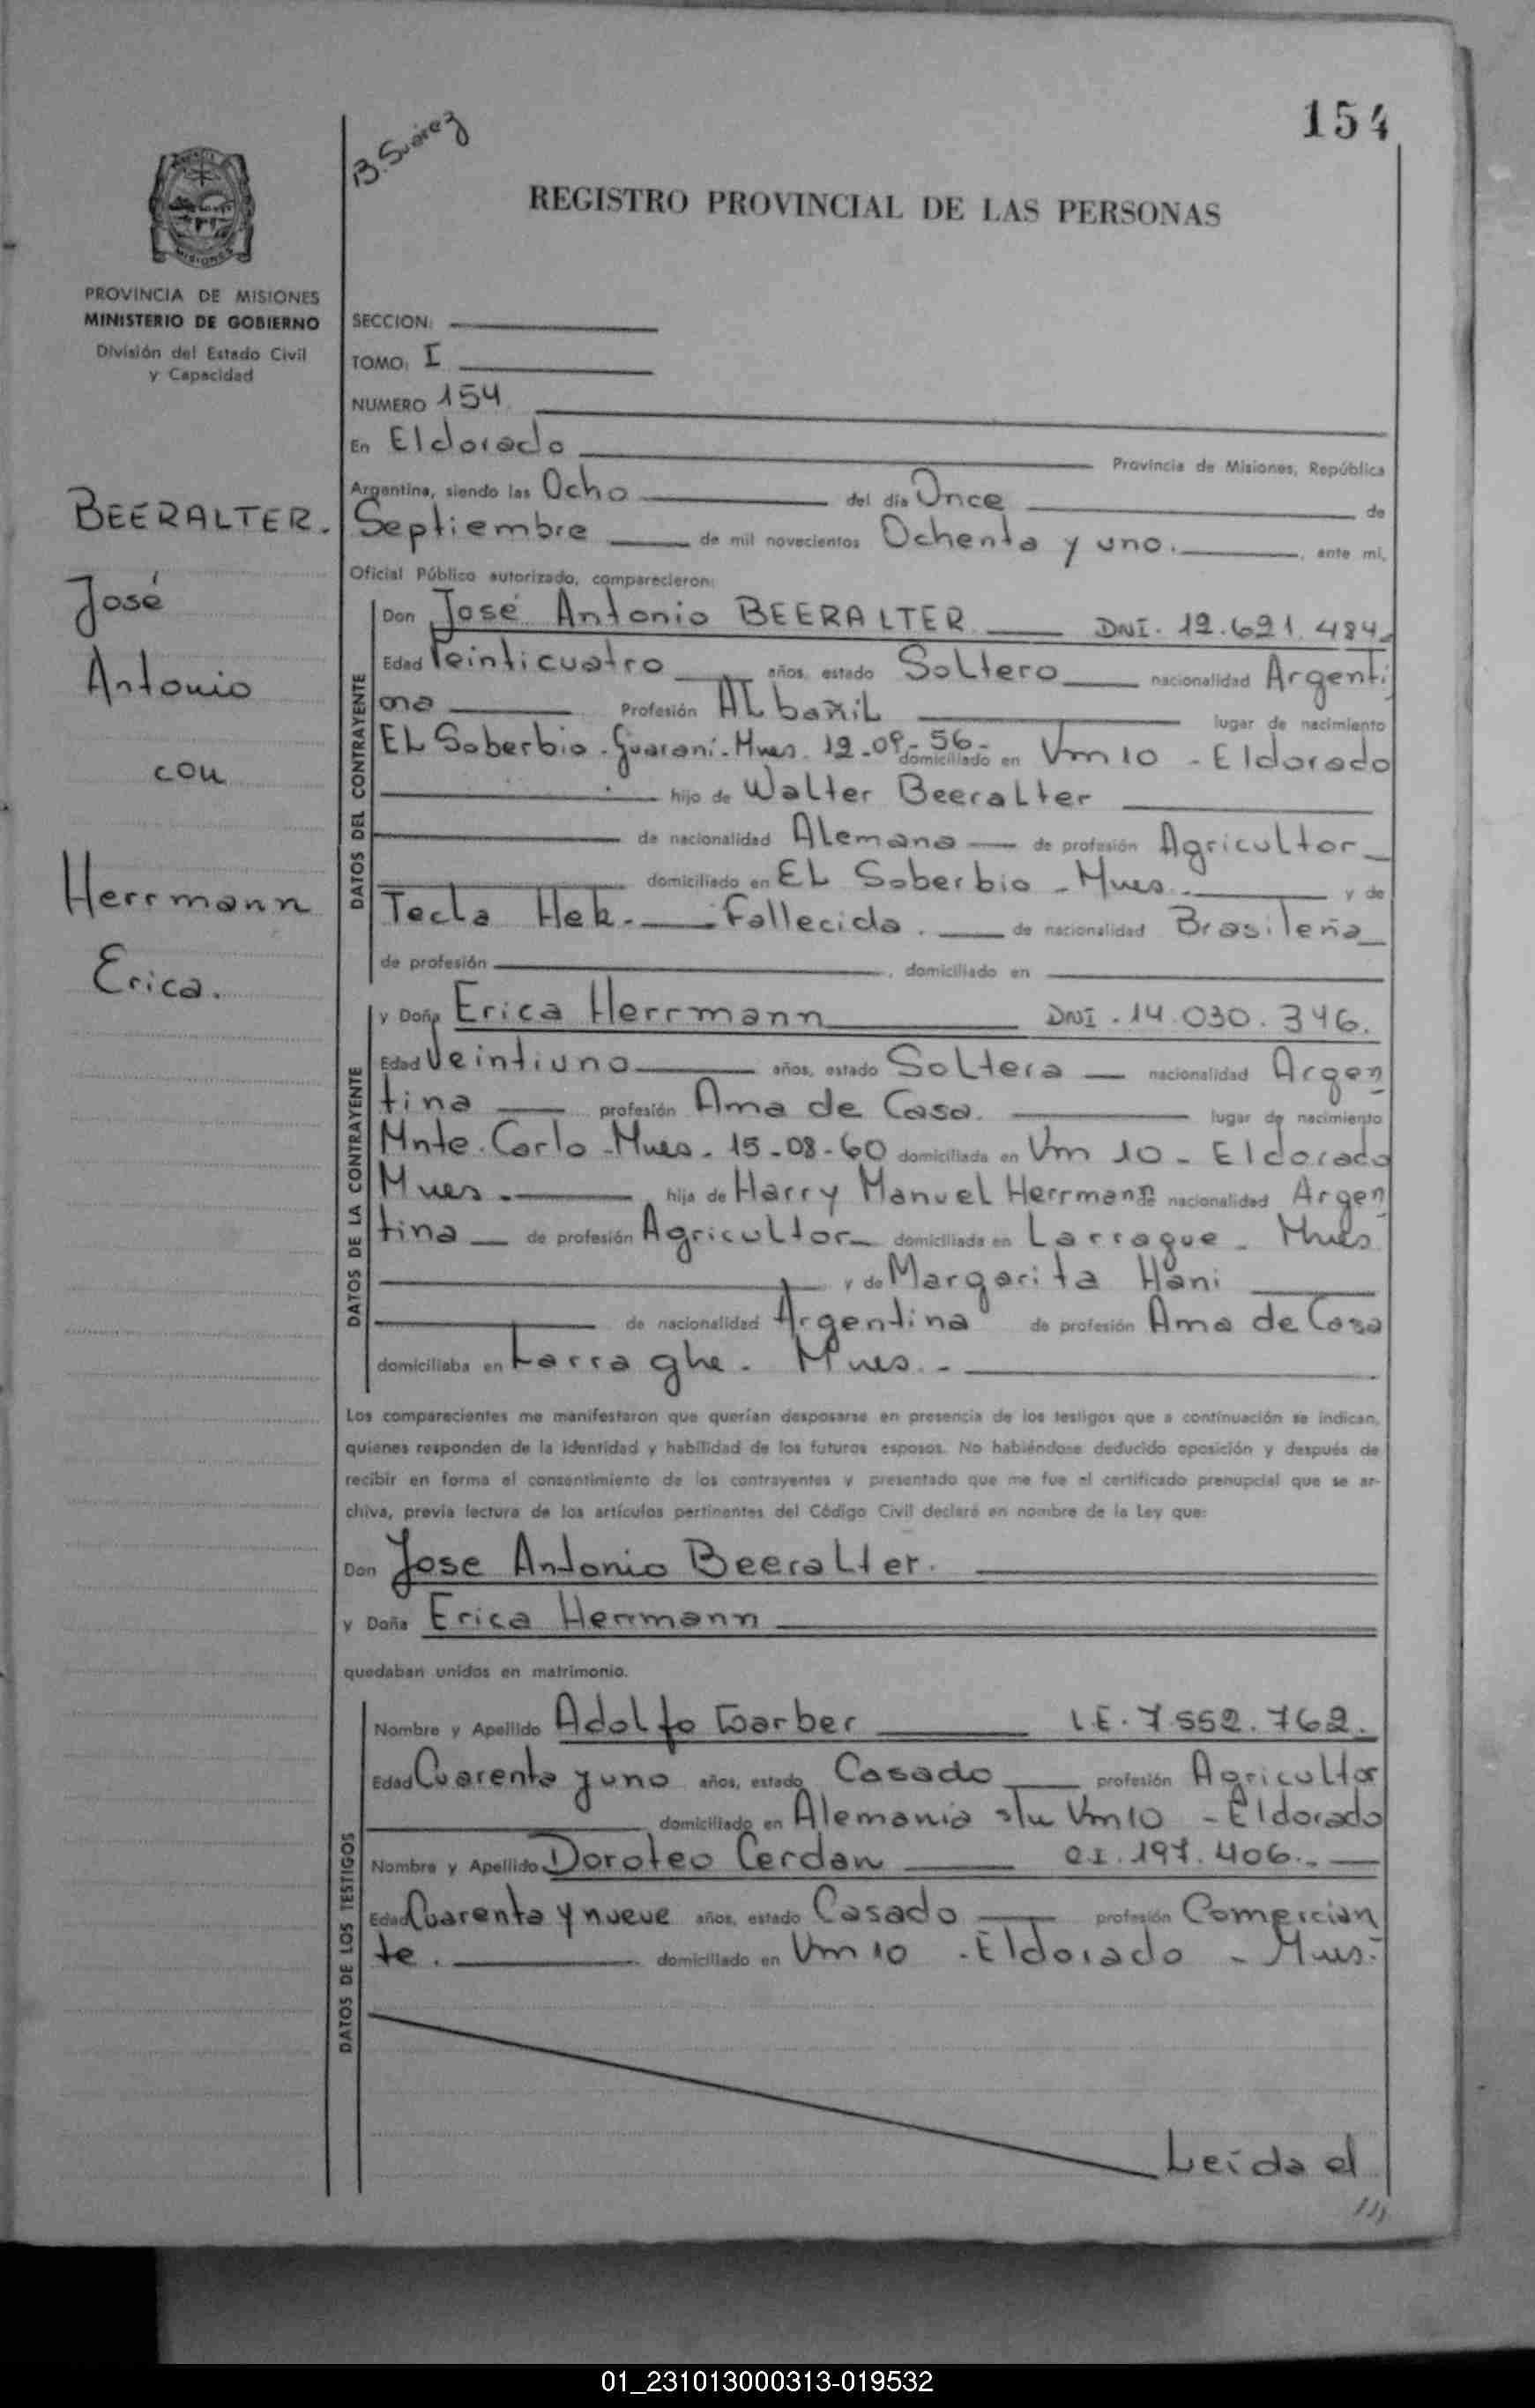 154
B. Suárez
REGISTRO PROVINCIAL DE LAS PERSONAS
PROVINCIA DE MISIONES
MINISTERIO DE GOBIERNO
División del Estado Civil
y Capacidad
SECCION:
TOMO: I
NUMERO 154
En Eldorado Provincia de Misiones, República
Argentina, siendo las Ocho del día Once de
Septiembre de mil novecientos Ochenta y uno. , ante mi,
Oficial Público autorizado, comparecieron:
BEERALTER.
José
Antonio
con
Herrmann
Erica.
DATOS DEL CONTRAYENTE
Don José Antonio BEERALTER DNI. 12.621.484.
Edad Veinticuatro años, estado Soltero nacionalidad Argenti
na Profesión ALbañiL lugar de nacimiento
EL Soberbio. Guaraní. Mnes. 12-09-56- domiciliado en Vm 10 - Eldorado
hijo de Walter Beeralter
de nacionalidad Alemana de profesión Agricultor
domiciliado en EL Soberbio - Mnes. y de
Tecla Hek. Fallecida. de nacionalidad Brasileña
de profesión , domiciliado en
DATOS DE LA CONTRAYENTE
y Doña Erica Herrmann DNI. 14.030.346.
Edad Veintiuno años, estado Soltera nacionalidad Argen
tina profesión Ama de Casa. lugar de nacimiento
Mnte. Carlo - Mnes. 15-08-60 domiciliada en Vm 10 - Eldorado
Mnes. hija de Harry Manuel Herrmann de nacionalidad Argen
tina de profesión Agricultor domiciliada en Larrague - Mnes
y de Margarita Hani
de nacionalidad Argentina de profesión Ama de Casa
domiciliaba en Larraghe. Mnes.-
Los comparecientes me manifestaron que querían desposarse en presencia de los testigos que a continuación se indican,
quienes responden de la identidad y habilidad de los futuros esposos. No habiéndose deducido oposición y después de
recibir en forma el consentimiento de los contrayentes y presentado que me fue el certificado prenupcial que se ar-
chiva, previa lectura de los artículos pertinentes del Código Civil declaré en nombre de la Ley que:
Don Jose Antonio Beeralter.
y Doña Erica Herrmann
quedaban unidos en matrimonio.
DATOS DE LOS TESTIGOS
Nombre y Apellido Adolfo Garber L.E. 7.552.762.
Edad Cuarenta y uno años, estado Casado profesión Agricultor
domiciliado en Alemania s/n Vm 10 - Eldorado
Nombre y Apellido Doroteo Cerdan C.I. 197.406.
Edad Cuarenta y nueve años, estado Casado profesión Comercian
te. domiciliado en Vm 10 - Eldorado - Mnes.
Leida el
///
01_231013000313-019532